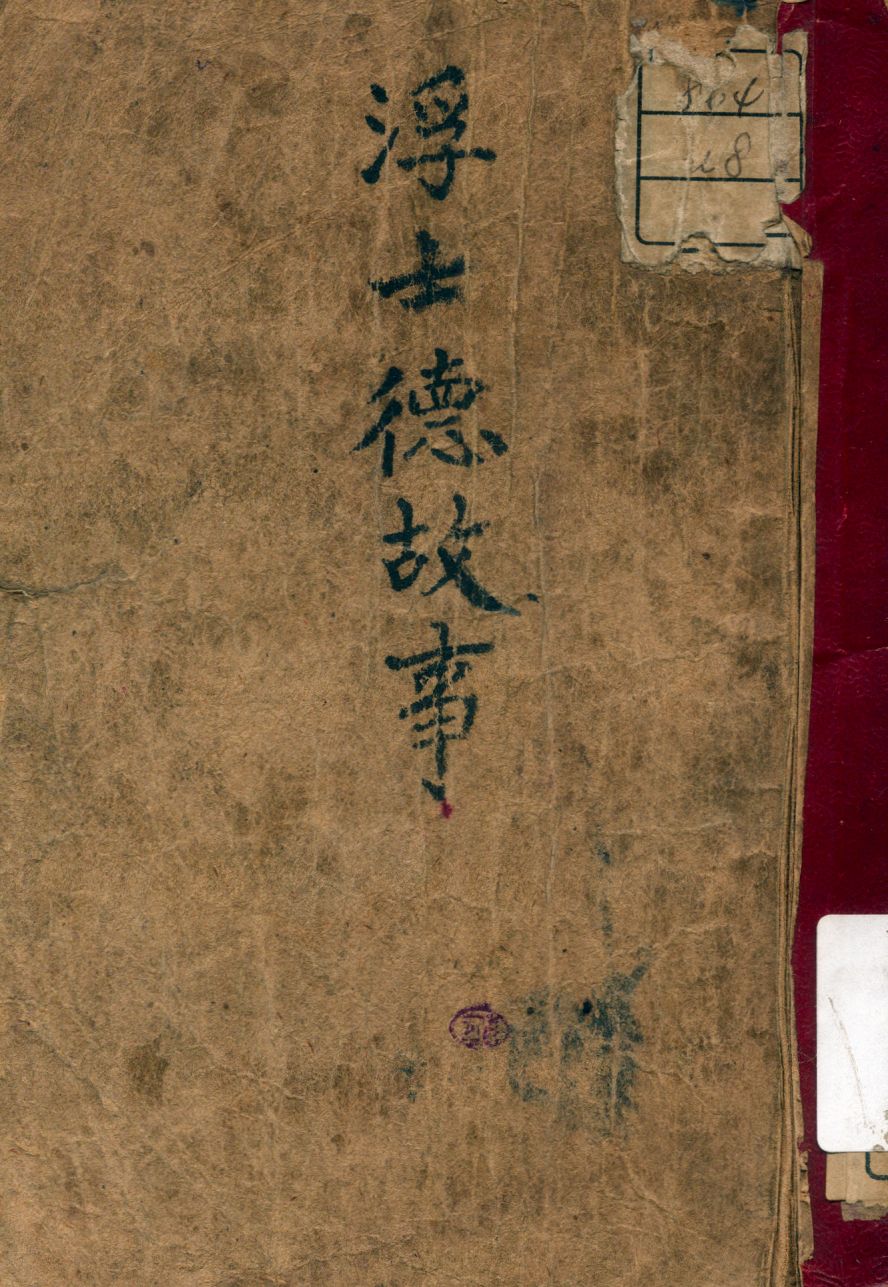 浮士德故事
804